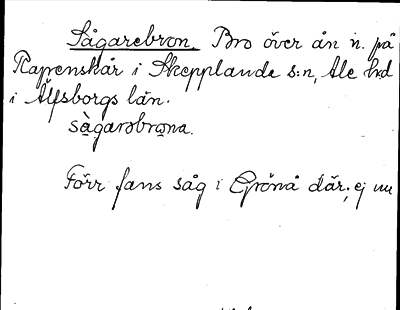 Sågarebron. Bro över ån n. på
Rapenskår i Skepplanda s:n, Ale hd
i Älfsborgs län.
sàgarəbrǫna.
Förr fans såg i Grönå där; ej nu